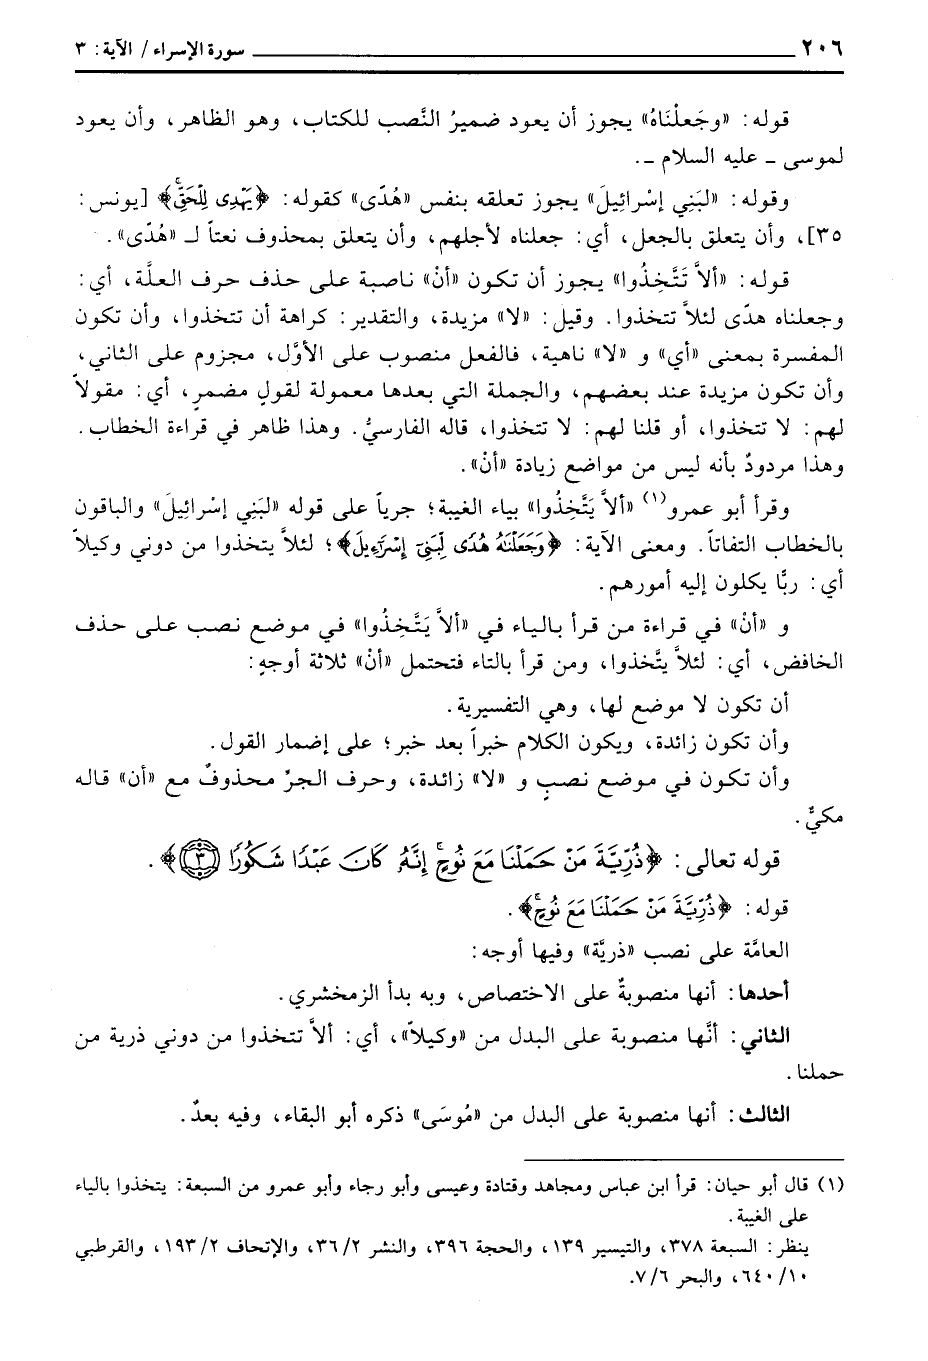 ٢٠٦ سورة الإسراء / الآية: ٣
قوله: «وجَعلْنَاهُ» يجوز أن يعود ضميرُ النَّصب للكتاب، وهو الظاهر، وأن يعود
لموسى ـ عليه السلام ـ.
وقوله: «لبَنِي إسْرائِيلَ» يجوز تعلقه بنفس «هُدًى» كقوله: ﴿يَهْدِى لِلْحَقِّۚ﴾ [يونس:
٣٥]، وأن يتعلق بالجعل، أي: جعلناه لأجلهم، وأن يتعلق بمحذوف نعتاً لـ «هُدًى».
قوله: «ألاَّ تَتَّخِذُوا» يجوز أن تكون «أنْ» ناصبة على حذف حرف العلَّة، أي:
وجعلناه هدًى لئلاَّ تتخذوا. وقيل: «لا» مزيدة، والتقدير: كراهة أن تتخذوا، وأن تكون
المفسرة بمعنى «أي» و «لا» ناهية، فالفعل منصوب على الأوَّل، مجزوم على الثاني،
وأن تكون مزيدة عند بعضهم، والجملة التي بعدها معمولة لقولٍ مضمرٍ، أي: مقولاً
لهم: لا تتخذوا، أو قلنا لهم: لا تتخذوا، قاله الفارسيُّ. وهذا ظاهر في قراءة الخطاب.
وهذا مردودٌ بأنه ليس من مواضع زيادة «أنْ».
وقرأ أبو عمرو(١) «ألاَّ يَتَّخِذُوا» بياء الغيبة؛ جرياً على قوله «لبَنِي إسْرائِيلَ» والباقون
بالخطاب التفاتاً. ومعنى الآية: ﴿وَجَعَلْنَٰهُ هُدًى لِّبَنِىٓ إِسْرَٰٓءِيلَ﴾؛ لئلاَّ يتخذوا من دوني وكيلاً
أي: ربًّا يكلون إليه أمورهم.
و «أنْ» في قراءة من قرأ بالياء في «ألاَّ يَتَّخِذُوا» في موضع نصب على حذف
الخافض، أي: لئلاَّ يتَّخذوا، ومن قرأ بالتاء فتحتمل «أنْ» ثلاثة أوجهٍ:
أن تكون لا موضع لها، وهي التفسيرية.
وأن تكون زائدة، ويكون الكلام خبراً بعد خبر؛ على إضمار القول.
وأن تكون في موضع نصبٍ و «لا» زائدة، وحرف الجرِّ محذوفٌ مع «أن» قاله
مكيٌّ.
قوله تعالى: ﴿ذُرِّيَّةَ مَنْ حَمَلْنَا مَعَ نُوحٍۚ إِنَّهُۥ كَانَ عَبْدًا شَكُورًا ٣﴾.
قوله: ﴿ذُرِّيَّةَ مَنْ حَمَلْنَا مَعَ نُوحٍۚ﴾.
العامَّة على نصب «ذريَّة» وفيها أوجه:
أحدها: أنها منصوبةٌ على الاختصاص، وبه بدأ الزمخشري.
الثاني: أنَّها منصوبة على البدل من «وكيلاً»، أي: ألاَّ تتخذوا من دوني ذرية من
حملنا.
الثالث: أنها منصوبة على البدل من «مُوسَى» ذكره أبو البقاء، وفيه بعدٌ.
(١) قال أبو حيان: قرأ ابن عباس ومجاهد وقتادة وعيسى وأبو رجاء وأبو عمرو من السبعة: يتخذوا بالياء
على الغيبة.
ينظر: السبعة ٣٧٨، والتيسير ١٣٩، والحجة ٣٩٦، والنشر ٣٦/٢، والإتحاف ١٩٣/٢، والقرطبي
٦٤٠/١٠، والبحر ٧/٦.